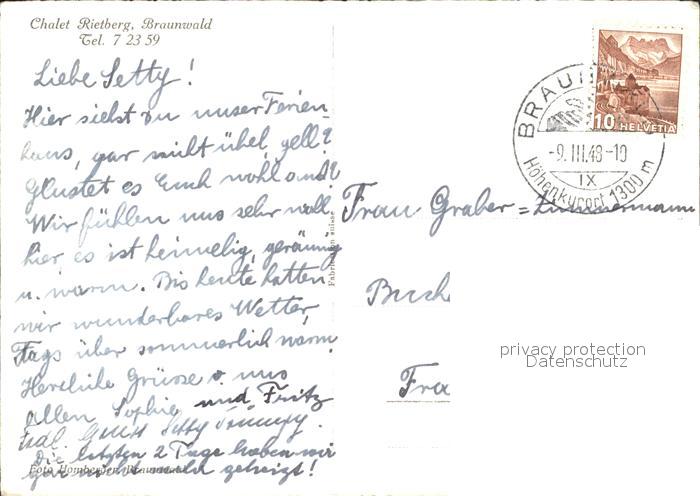 Chalet Rietberg, Braunwald
Tel. 7 23 59
Liebe Setty!
Hier siehst Du unser Ferien-
haus, gar nicht übel, gell?
Glustet es Euch wohl auch?
Wir fühlen uns sehr wohl
hier, es ist heimelig, geräumig
u. warm. Bis heute hatten
wir wunderbares Wetter,
Tags über sommerlich warm
Herzliche Grüsse v. uns
allen Sophie und Fritz
Frdl. Gruss Setty
Die letzten 2 Tage haben wir
gar nicht mehr geheizt!
Foto Homberger, Braunwald
Fabrikation suisse
BRAUNWALD
-9.III.48-10
IX
Höhenkurort 1300 m
10 HELVETIA
Frau Graber=Zimmermann
Buch
Fra
privacy protection
Datenschutz